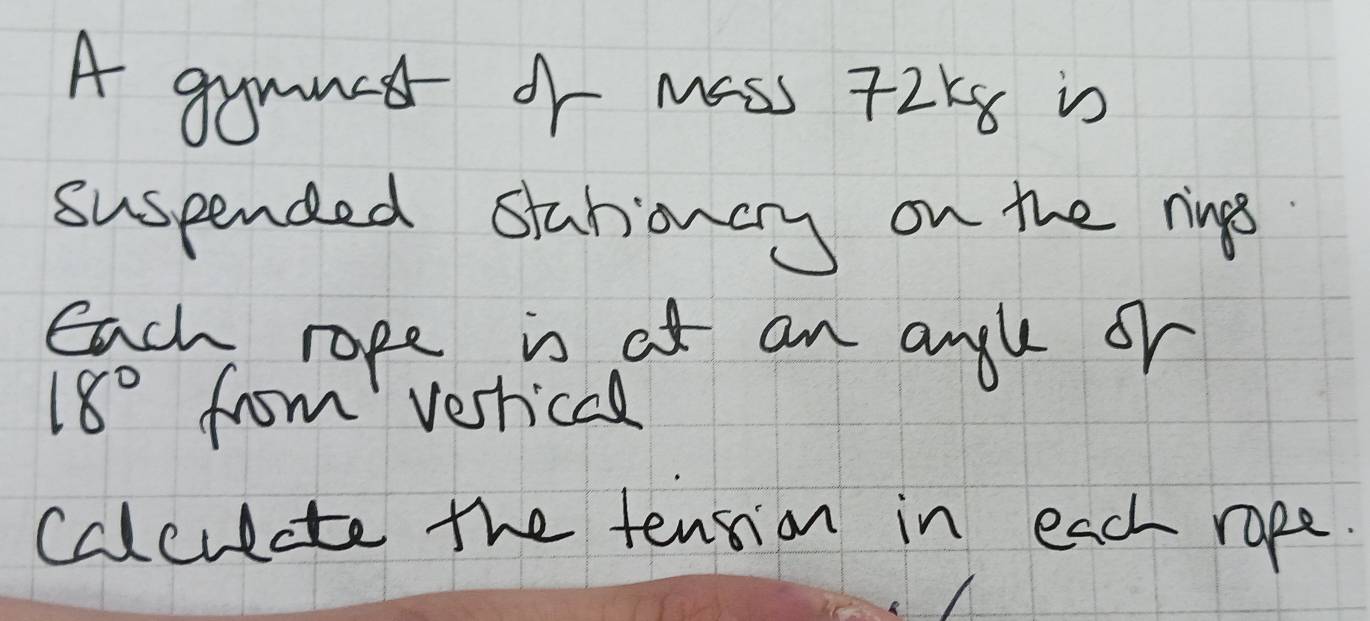 A gymnast of mass 72kg is
suspended stationary on the rings.
Each rope is at an angle of
18° from vertical
Calculate the tension in each rope.